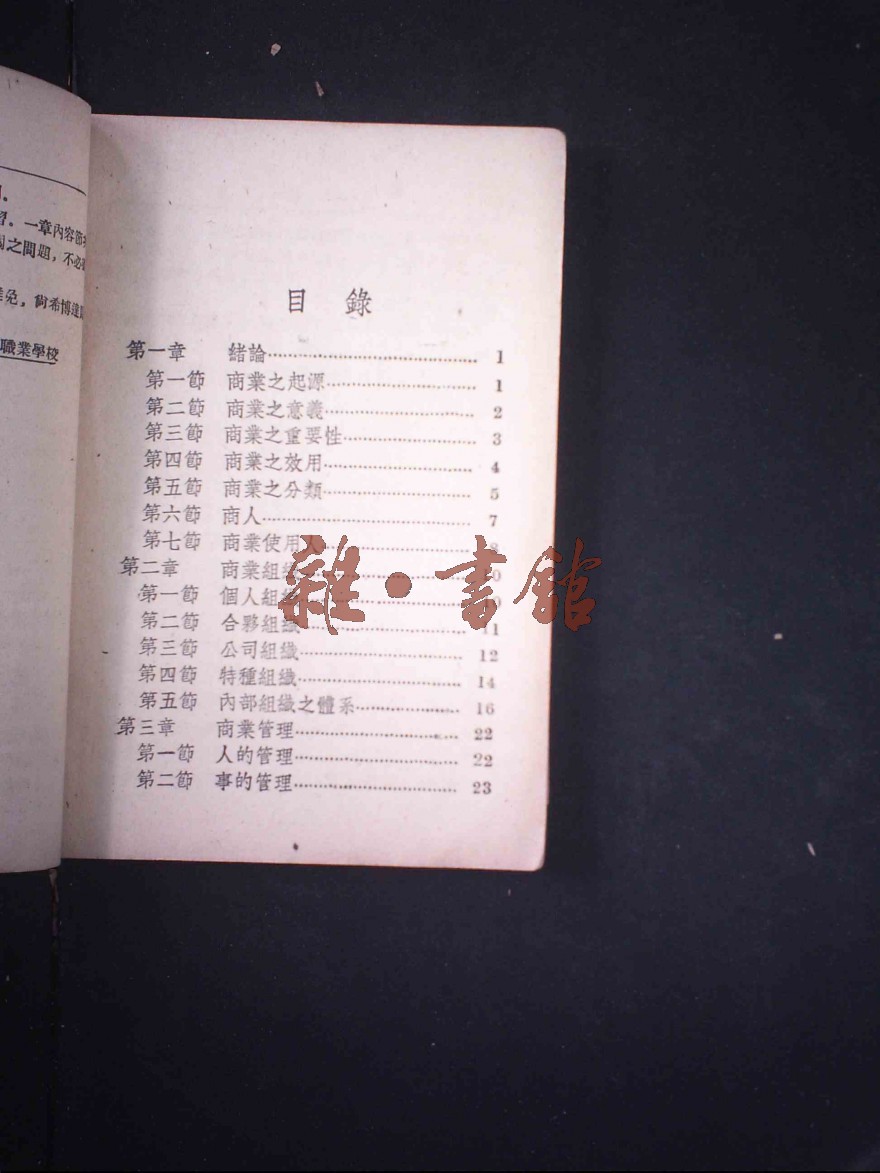 習. 一章內容節
之問題，不必
免，尙希博達
職業學校
目 錄
第一章 緒論 1
第一節 商業之起源 1
第二節 商業之意義 2
第三節 商業之重要性 3
第四節 商業之效用 4
第五節 商業之分類 5
第六節 商人 7
第七節 商業使用人 8
第二章 商業組織
第一節 個人組織
第二節 合夥組織 11
第三節 公司組織 12
第四節 特種組織 14
第五節 內部組織之體系 16
第三章 商業管理 22
第一節 人的管理 22
第二節 事的管理 23
雜·書館